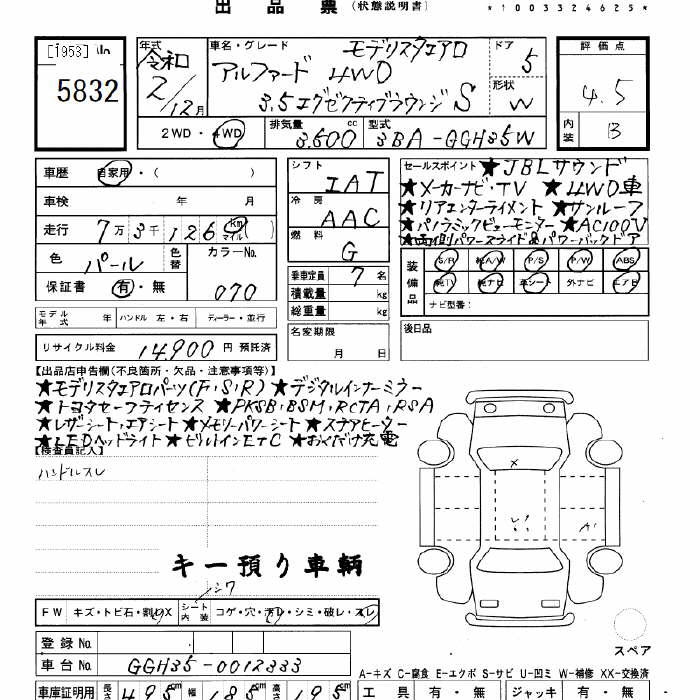 出 品 票 (状態説明書)
*1003324625*
[1953]
5832
年式 車名・グレード モデリスタエアロ ドア 5
令和 アルファード 4WD
2/12月 3.5エグゼクティブラウンジS 形状 W
2WD・4WD 排気量 3,500 cc 型式 3BA-GGH35W
評価点 4.5
内装 B
車歴 自家用・( )
車検 年 月
走行 7万3千126 km マイル ( )
色 パール 色替 カラーNo. 070
保証書 有・無
モデル年式 年 ハンドル 左・右 ディーラー・並行
リサイクル料金 14,900 円 預託済
シフト IAT
冷房 AAC
燃料 G
乗車定員 7 名
積載量 kg
総重量 kg
名変期限
月 日
セールスポイント ★JBLサウンド
★メーカーナビ・TV ★4WD車
★リアエンターテイメント ★サンルーフ
★パノラミックビューモニター ★AC100V
★両側パワースライド&パワーバックドア
装備品 S/R 純A/W P/S P/W ABS
純TV 純ナビ 革シート 外ナビ エアB
ナビ型番:
後日品
【出品店申告欄(不良箇所・欠品・注意事項等)】
★モデリスタエアロパーツ(F,S,R) ★デジタルインナーミラー
★トヨタセーフティセンス ★PKSB,BSM,RCTA,RSA
★レザーシート,エアシート ★メモリーパワーシート ★ステアヒーター
★LEDヘッドライト ★ビルトインETC ★おくだけ充電
【検査員記入】
ハンドルスレ
キー預り車輌
シワ
FW キズ・トビ石・割レX シート内装 コゲ・穴・汚レ・シミ・破レ・スレ
登録No.
車台No. GGH35-0012333
車庫証明用 長さ 495 cm 幅 185 cm 高さ 195 cm
A1
スペア
A-キズ C-腐食 E-エクボ S-サビ U-凹ミ W-補修 XX-交換済
工具 有・無 ジャッキ 有・無